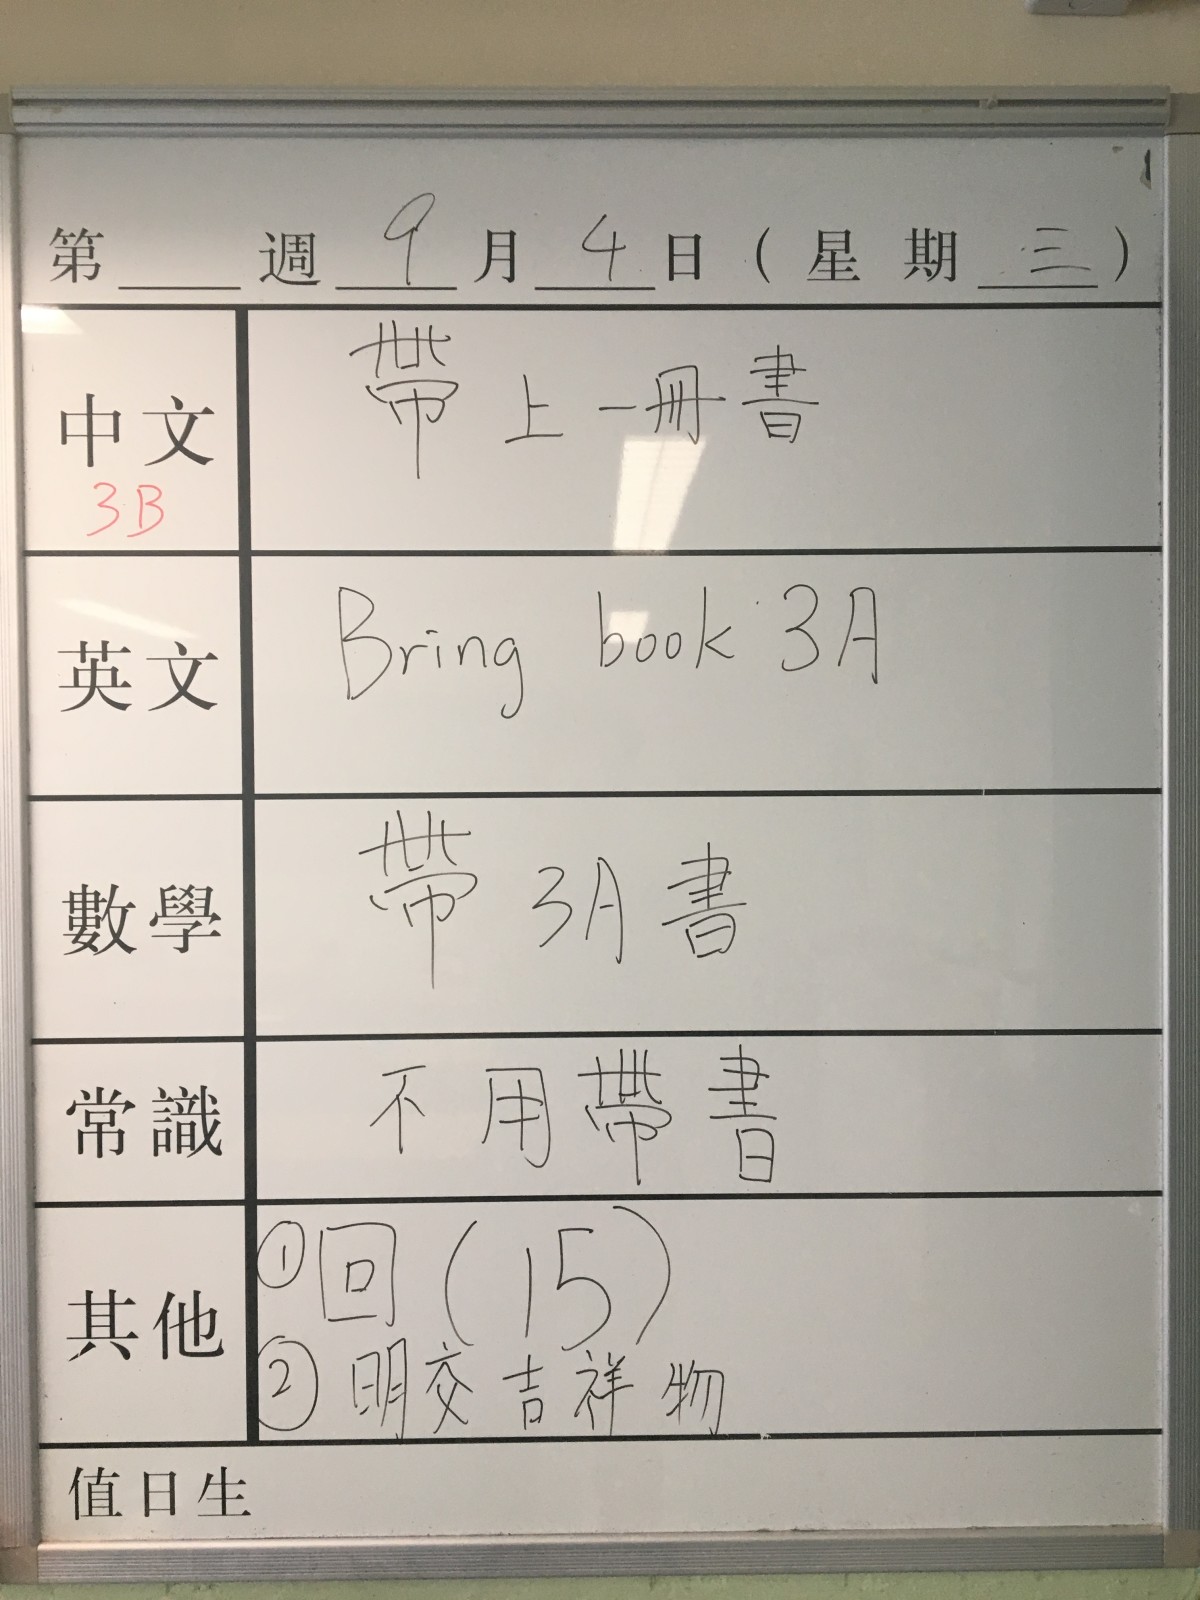 第 週 9 月 4 日 ( 星 期 三 )
中文
3B
帶上一冊書
英文
Bring book 3A
數學
帶 3A 書
常識
不用帶書
其他
① 回 (15)
② 明交吉祥物
值日生